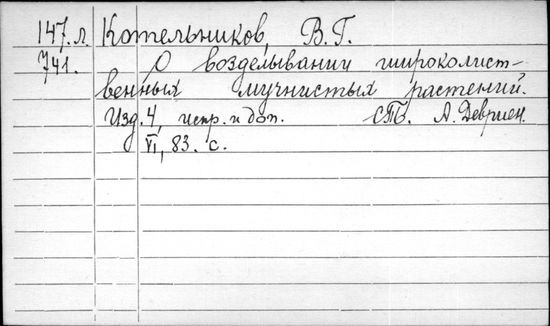 147.л. Котельников, В.Г.
741. О возделывании широколист-
венных мучнистых растений.
Изд. 4, испр. и доп. СПб. А. Девриен.
VI, 83. с.